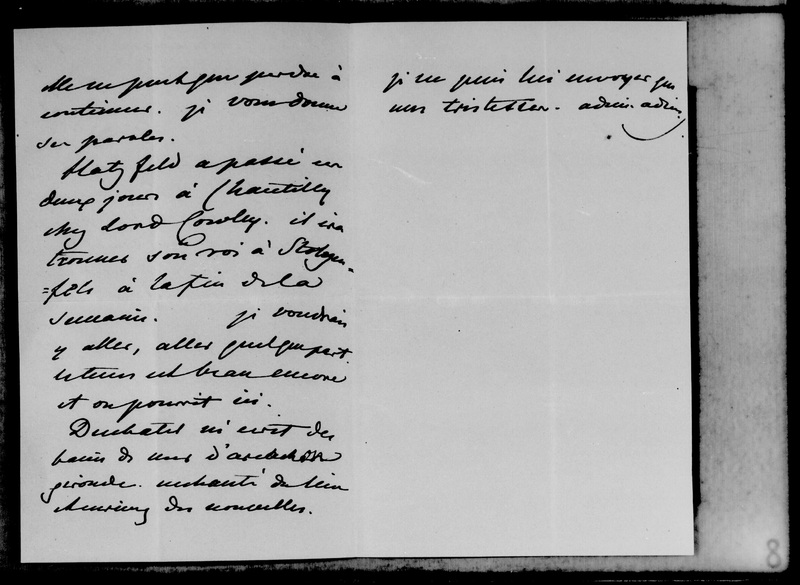 elle ne peut que perdre à
continuer. je vous donne
ses paroles.
Hatzfeld a passé
deux jours à Chantilly
chez Lord Cowley. il ira
trouver son roi à Stolzen=
=fels à la fin de la
semaine. je voudrais
y aller, aller quelque part
le tems est beau encore
et on pourrit ici.
Duchatel m'écrit des
bains de mer d'
gironde. enchanté du lieu
des nouvelles.
je ne puis lui envoyer que
mes tristesses. adieu. adieu.
8